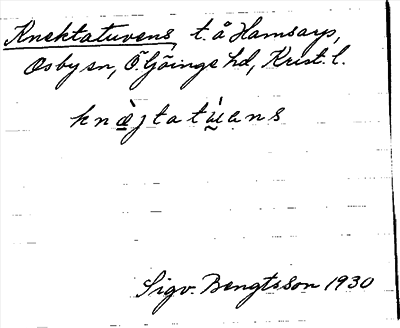 Knektatuvens, t. å Hamsarp,
Osby sn, Ö. Göinge hd, Krist. l.
Sigv. Bengtsson 1930